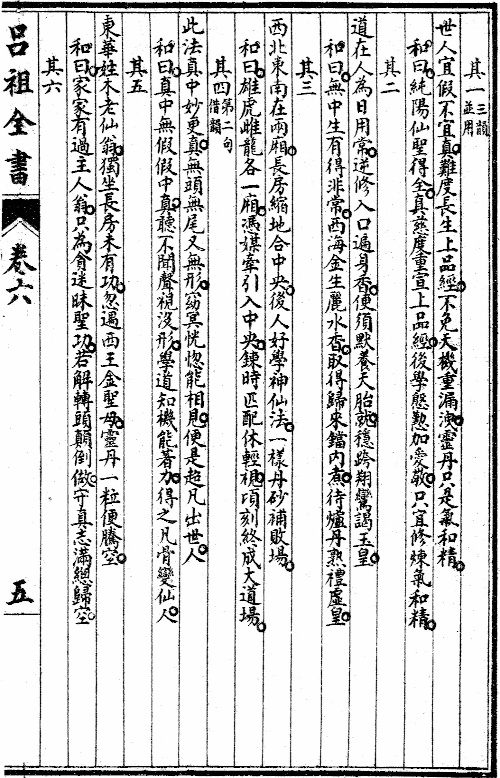 其一三韻並用
世人宜假不宜真難度長生上品經不免天機重漏洩靈丹只是氣和精
和曰純陽仙聖得全真慈度重宣上品經後學慇懃加愛敬只宜修煉氣和精
其二
道在人為日用常逆修入口遍身香便須默養天胎就穩跨翔鸞謁玉皇
和曰無中生有得非常西海金生麗水香取得歸來鐺內煮待爐丹熟禮虛皇
其三
西北東南在兩廂長房縮地合中央後人好學神仙法一樣丹砂補敗場
和曰雄虎雌龍各一廂憑媒牽引入中央鍊時匹配休輕視頃刻終成大道場
其四第二句借韻
此法真中妙更真無頭無尾又無形窈冥恍惚能相見便是超凡出世人
和曰真中無假假中真聽不聞聲視沒形學道知機能著力得之凡骨變仙人
其五
東華姓木老仙翁獨坐長房未有功忽遇西王金聖母靈丹一粒便騰空
和曰家家有過主人翁只為貪迷昧聖功若解轉頭顛倒做守真志滿總歸空
其六
呂祖全書 卷六 五